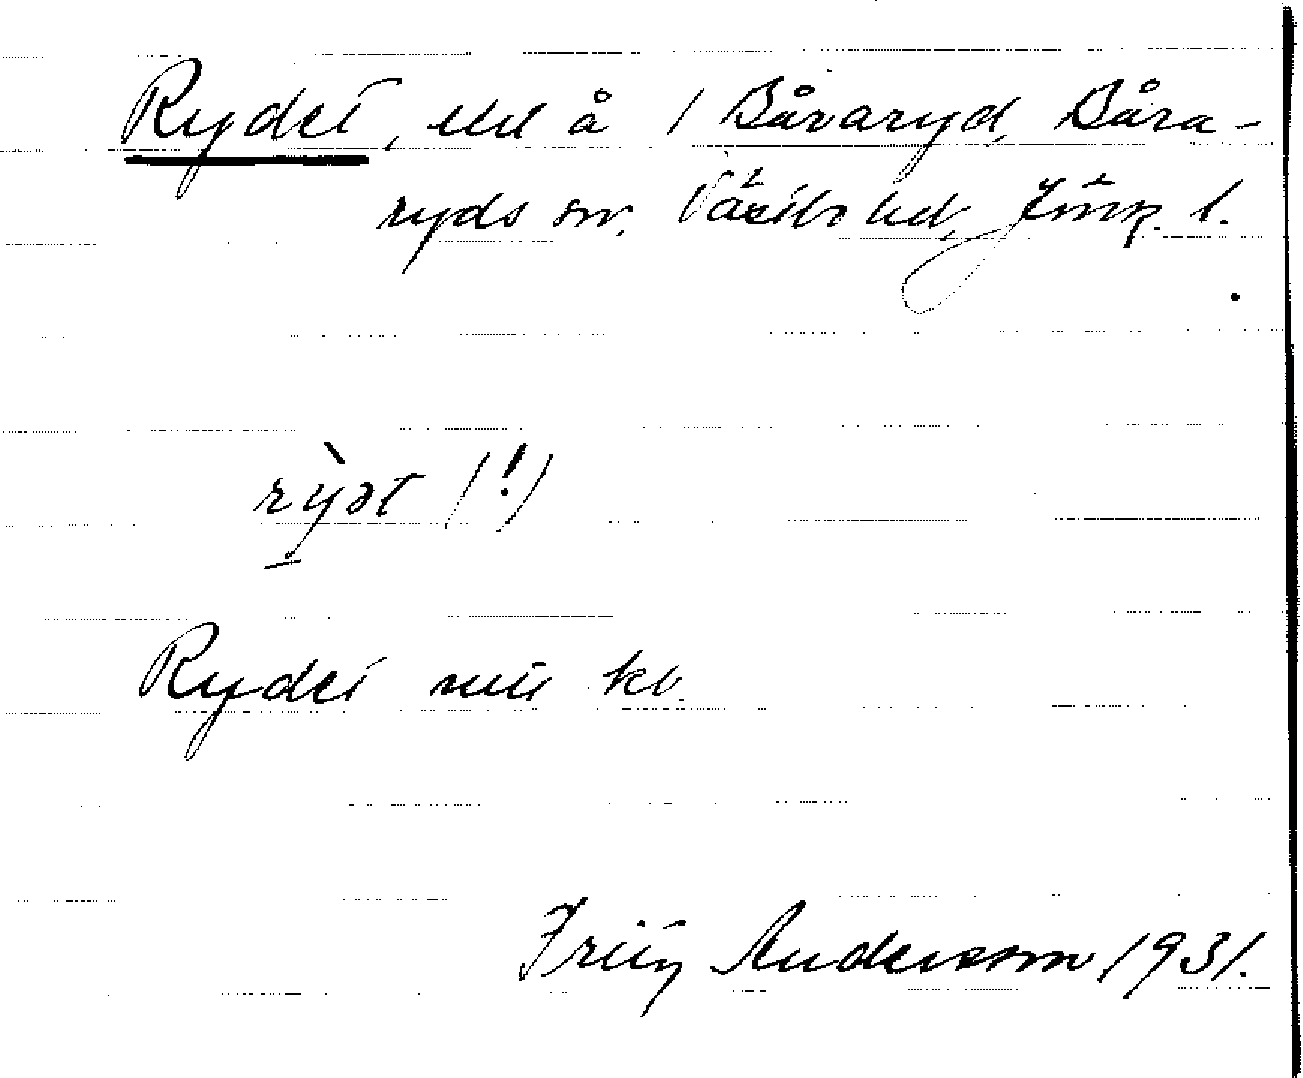 Rydet, utd å 1 Båraryd, Båra-
ryds sn, Västbo hd, Jönk. l.
rỳət (!)
Rydet
Fritz Andersson 1931.